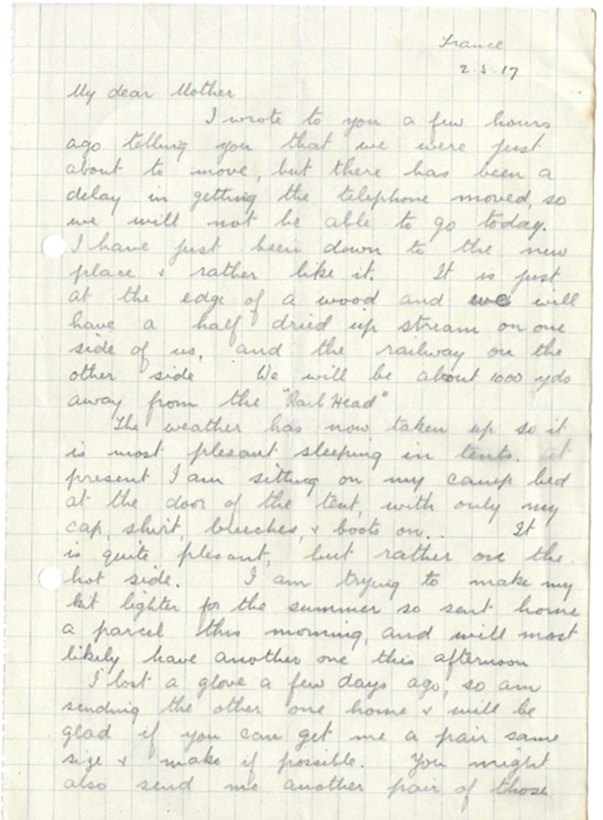 France
2.5.17
My dear Mother
I wrote to you a few hours
ago telling you that we were just
about to move, but there has been a
delay in getting the telephone moved, so
we will not be able to go today.
I have just been down to the new
place & rather like it. It is just
at the edge of a wood and we will
have a half dried up stream on one
side of us, and the railway on the
other side We will be about 1000 yds
away from the "Rail Head"
The weather has now taken up so it
is most plesant sleeping in tents. at
present I am sitting on my camp bed
at the door of the tent, with only my
cap, shirt, breeches, & boots on.. It
is quite plesant, but rather on the
hot side. I am trying to make my
kit lighter for the summer so sent home
a parcel this morning, and will most
likely have another one this afternoon
I lost a glove a few days ago, so am
sending the other one home & will be
glad if you can get me a pair same
size & make if possible. You might
also send me another pair of those